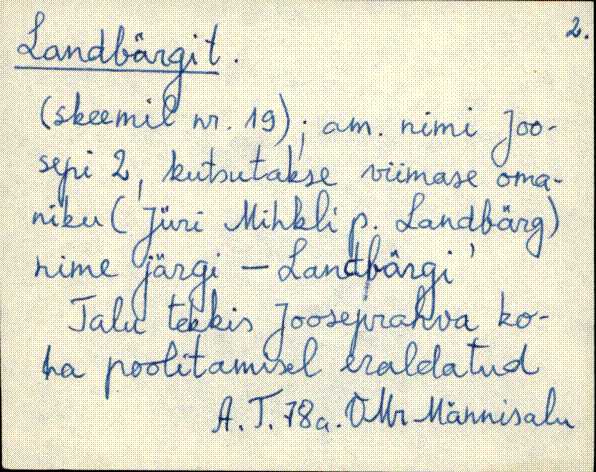 2.
Landbärgit.
(skeemil nr. 19); am. nimi Joo-
sepi 2, kutsutakse viimase oma-
niku (Jüri Mihkli p. Landbärg)
nime järgi – Landbärgi
Talu tekkis Jooseprahva ko-
ha poolitamisel eraldatud
A. T. 78a. Männisalu